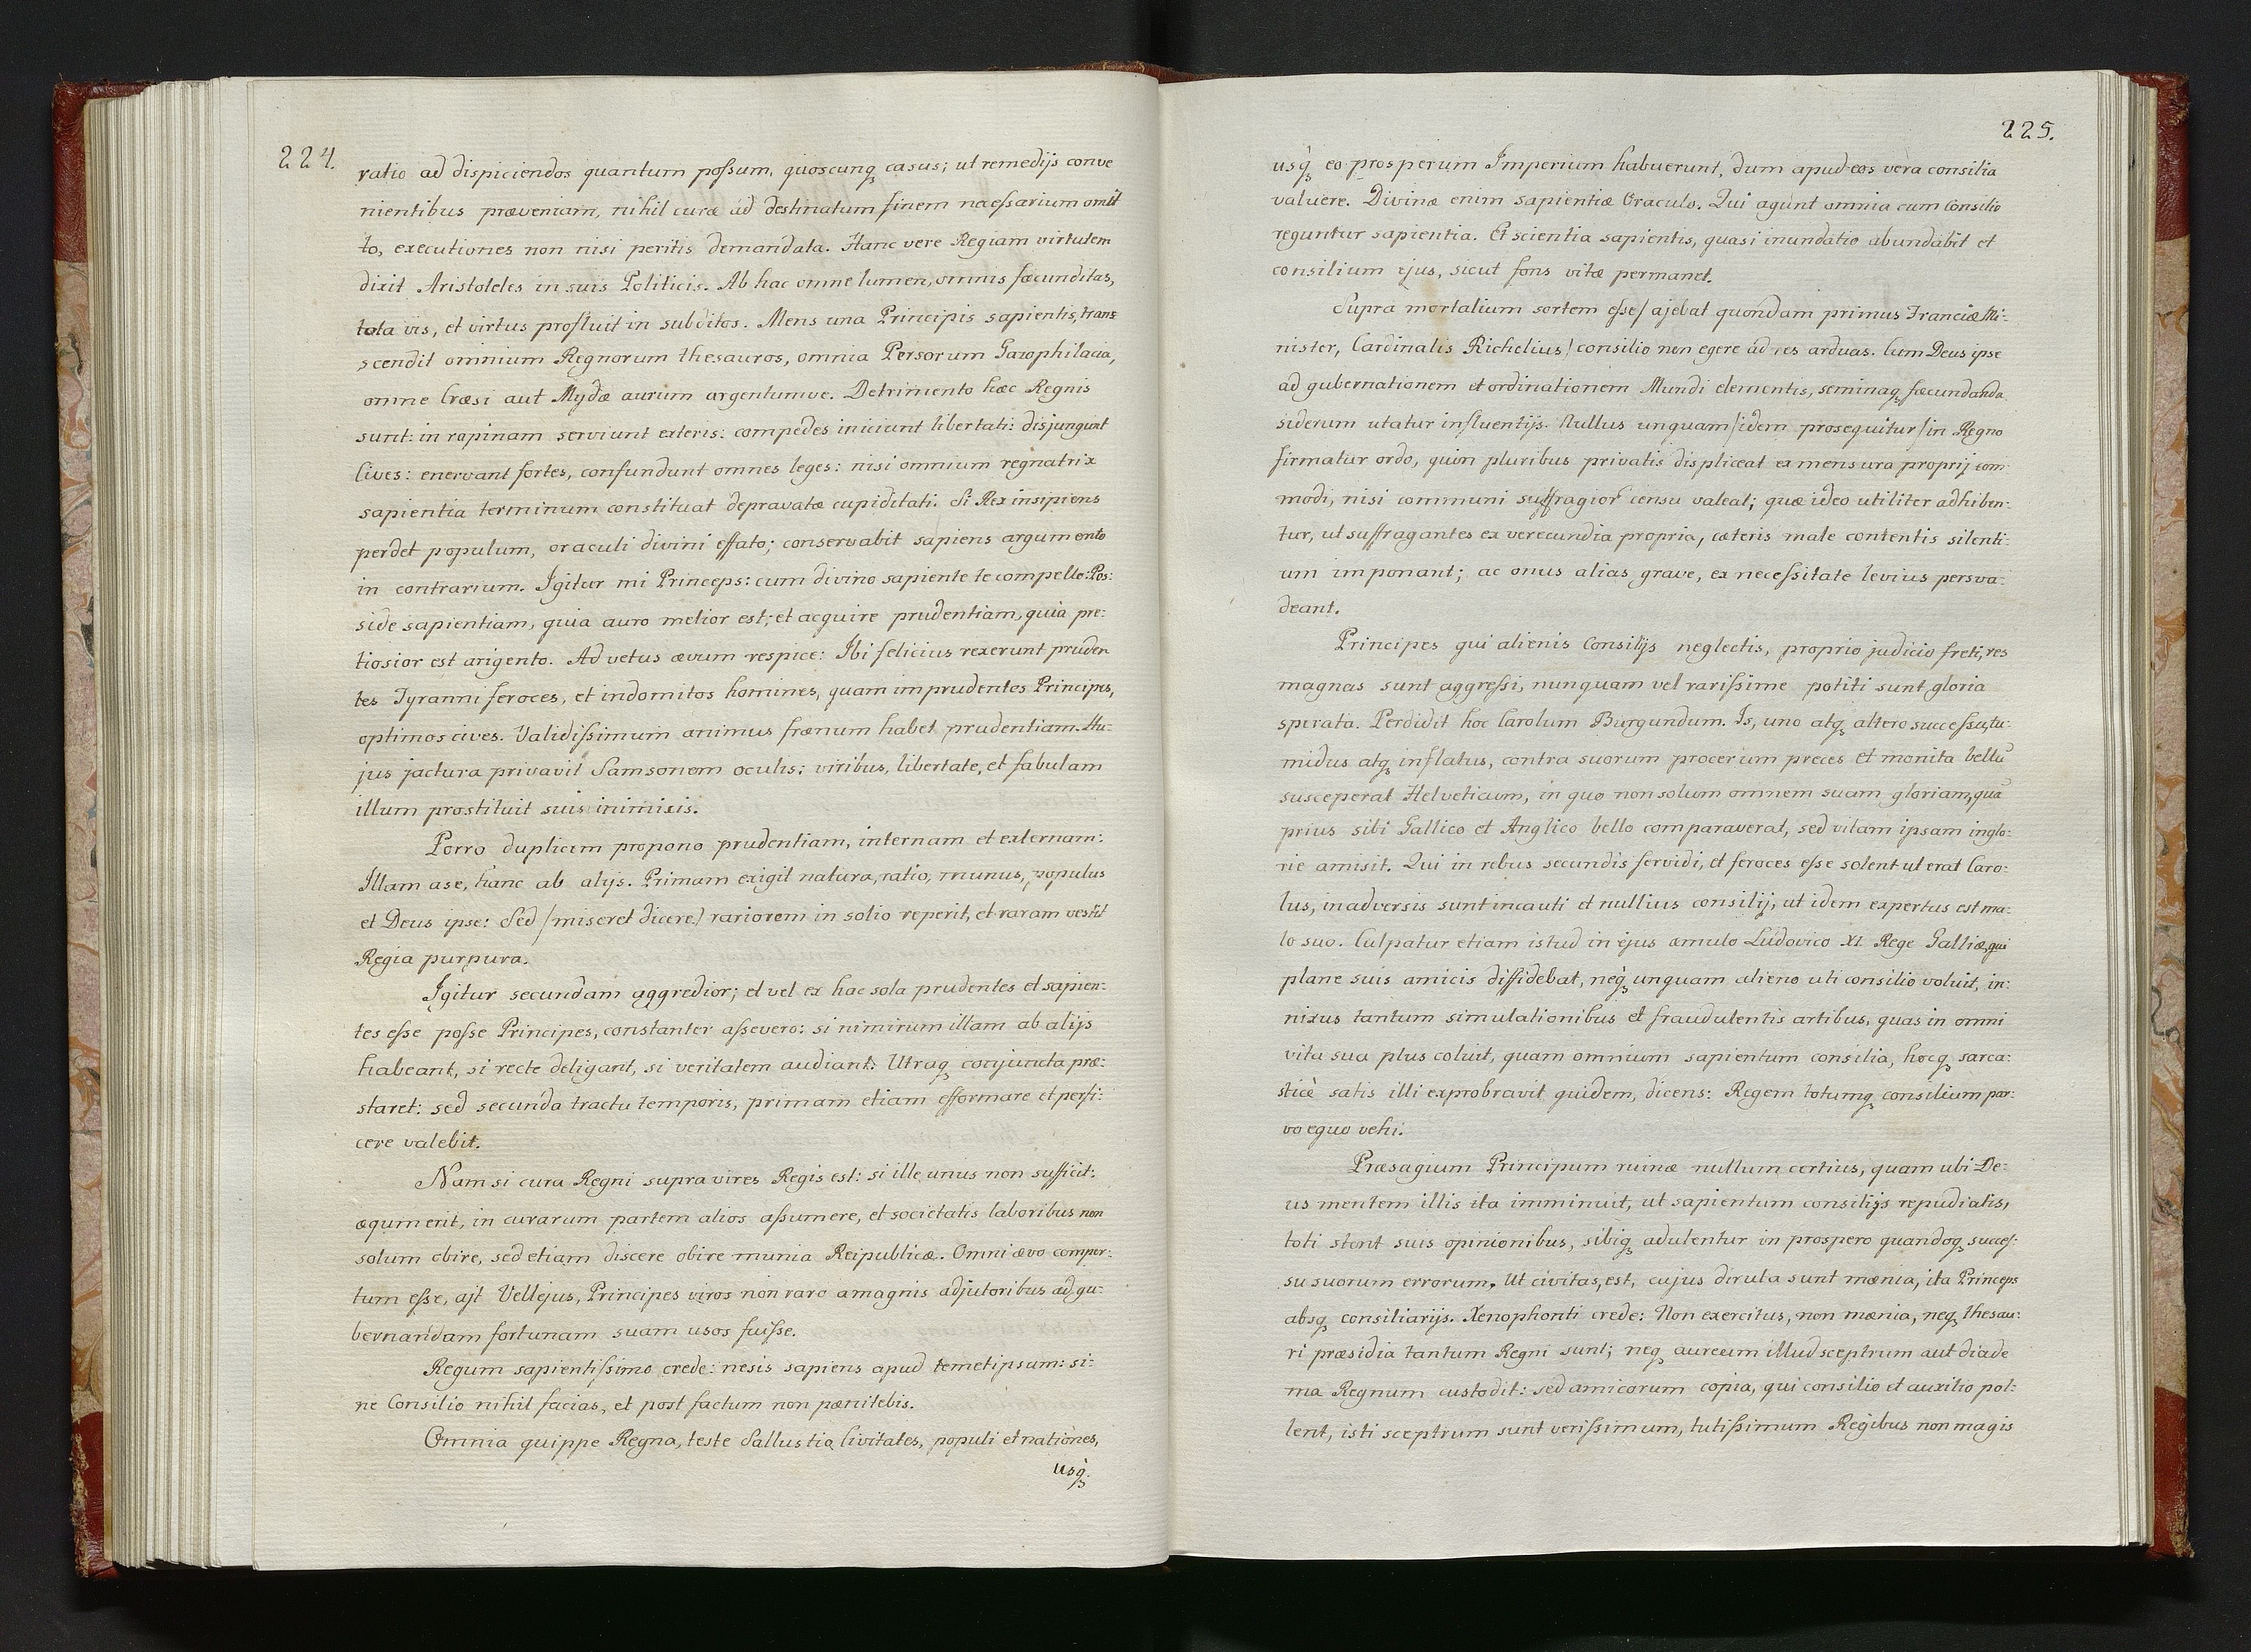 224.
ratio ad dispiciendos quantum possum, quoscunq₃ casus; ut remedijs conve
nientibus præveniam, nihil curæ ad destinatum finem necessarium omit
to, executiones non nisi peritis demandata. Hanc vere Regiam virtutem
dixit Aristoteles in suis Politicis. Ab hac omne lumen, omnis fœcunditas,
tota vis, et virtus profluit in subditos. Mens una Principis sapientis, trans
scendit omnium Regnorum thesauros, omnia Persorum Gazophilacia,
omne Cræsi aut Mydæ aurum argentumve. Detrimento hæc Regnis
sunt: in rapinam serviunt exteris: compedes iniciunt libertati: disjungunt
Cives: enervant fortes, confundunt omnes leges: nisi omnium regnatrix
sapientia terminum constituat depravatæ cupiditati. Si Rex insipiens
perdet populum, oraculi divini effato; conservabit sapiens argumento
in contrarium. Igitur mi Princeps: cum divino sapiente te compello: Pos:
side sapientiam, quia auro melior est; et acquire prudentiam, quia pre:
tiosior est arigento. Ad vetus ævum respice: Ibi felicius rexerunt pruden
tes Tyranni feroces, et indomitos homines, quam imprudentes Principes,
optimos cives. Validissimum animus frænum habet prudentiam. Hu:
jus jactura privavit Samsonem oculis; viribus, libertate, et fabulam
illum prostituit suis inimicis.
Porro duplicem propono prudentiam, internam et externam:
Illam a se, hanc ab alijs. Primam exigit natura, ratio, munus, populus
et Deus ipse: Sed /miseret dicere/ rariorem in solio reperit, et raram vestit
Regia purpura.
Igitur secundam aggredior; et vel ex hac sola prudentes et sapien:
tes esse posse Principes, constanter assevero: si nimirum illam ab alijs
habeant, si recte deligant, si veritatem audiant: Utraq₃ conjuncta præ:
staret: sed secunda tractu temporis, primam etiam efformare et perfi:
cere valebit.
Nam si cura Regni supra vires Regis est: si ille unus non sufficit:
æqum erit, in curarum partem alios assumere, et societatis laboribus non
solum obire, sed etiam discere obire munia Reipublicæ. Omni ævo comper:
tum esse, ajt Vellejus, Principes viros non raro a magnis adjutoribus ad gu:
bernandam fortunam suam usos fuisse.
Regum sapientissimo crede: ne sis sapiens apud temetipsum: si:
ne Consilio nihil facias, et post factum non pænitebis.
Omnia quippe Regna, teste Sallustio, Civitates, populi et nationes,
usq₃
225.
usq₃ eo prosperum Imperium habuerunt, dum apud eos vera consilia
valuere. Divinæ enim sapientiæ Oraculo. Qui agunt omnia cum Consilio
reguntur sapientia. Et scientia sapientis, quasi inundatio abundabit et
consilium ejus, sicut fons vitæ permanet.
Supra mortalium sortem esse/ ajebat quondam primus Franciæ Mi:
nister, Cardinalis Richelius/ consilio non egere ad res arduas. Cum Deus ipse
ad gubernationem et ordinationem Mundi elementis, seminaq₃ fœcundanda
siderum utatur influentijs. Nullus unquam /idem prosequitur/ in Regno
firmatur ordo, quin pluribus privatis displiceat ex mensura proprij com
modi, nisi communi suffragior̃ censu valeat; quæ ideo utiliter adhiben:
tur, ut suffragantes ex verecundia propria, cæteris male contentis silenti:
um imponant; ac onus alias grave, ex necessitate levius persva:
deant.
Principes qui alienis Consilijs neglectis, proprio judicio freti, res
magnas sunt aggressi, nunquam vel rarissime potiti sunt gloria
sperata. Perdidit hoc Carolum Burgundum. Is, uno atq₃ altero successu, tu:
midus atq₃ inflatus, contra suorum procerum preces et monita bellũ
susceperat Helveticum, in quo non solum omnem suam gloriam, quã
prius sibi Gallico et Anglico bello comparaverat, sed vitam ipsam inglo:
rie amisit. Qui in rebus secundis fervidi, et feroces esse solent ut erat Caro:
lus, in adversis sunt incauti et nullius consilij, ut idem expertus est ma:
lo suo. Culpatur etiam istud in ejus æmulo Ludovico XI Rege Galliæ, qui
plane suis amicis diffidebat, neq₃ unquam alieno uti consilio voluit, in:
nixus tantum simulationibus et fraudulentis artibus, quas in omni
vita sua plus coluit, quam omnium sapientum consilia, hocq₃ sarca:
sticè satis illi exprobravit quidem, dicens: Regem totumq₃ consilium par:
vo equo vehi.
Præsagium Principum ruinæ nullum certius, quam ubi De:
us mentem illis ita imminuit, ut sapientum consilijs repudiatis,
toti stent suis opinionibus, sibiq₃ adulentur in prospero quandoq₃ succes:
su suorum errorum. Ut civitas, est, cujus diruta sunt mænia, ita Princeps
absq₃ consiliarijs. Xenophonti crede: Non exercitus, non mænia, neq₃ thesau:
ri præsidia tantum Regni sunt; neq₃ aureum illud sceptrum aut diade
ma Regnum custodit: sed amicorum copia, qui consilio et auxilio pol:
lent, isti sceptrum sunt verissimum, tutissimum Regibus non magis